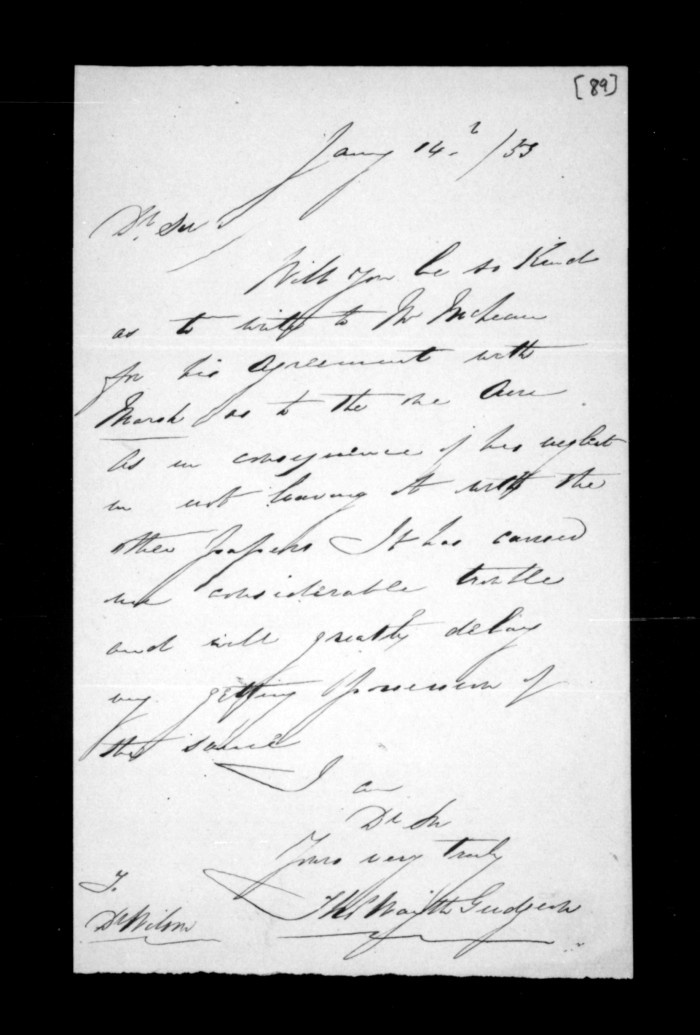 [89]
Jany 14.th /53
Dr. Sir
Will you be so Kind
as to write to Mr McLean
for his Agreement with
Marsh as to the one Acre
As in consequence of his neglect
in not leaving it with the
other papers It has caused
me considerable trouble
and will greatly delay
my getting possession of
the same
I am
Dr Sir
Yours very truly
Thos Waith Gudgeon
To
Dr Wilson